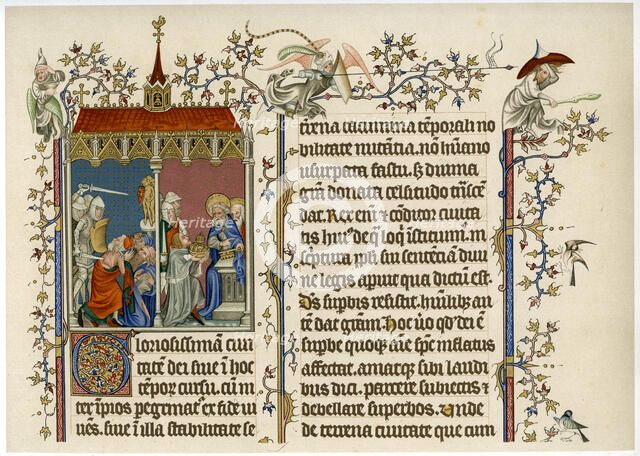 Gloriosissimā ciui
tatē dei siue ī hoc
tēpoꝝ cursu. cū in
ter īpios pegrinat᷑ ex fide ui
uēs. siue ī illa stabilitate se
trena cacumina tēporali no
bilitate nutātia. nō hūano
usurpata fastu. s̄ diuina
grā̄ donata celsitudo trāscē
dat. Rex enī ⁊ cōditor ciuita
tis hui᷒ de q̄ loq̄ īstituim᷒. ī
sc̄ptura ppl̄i sui sentēciā diui
ne legis apiut qua dictū est.
Ds̄ supbis resistit. hūilibꝫ au
tē dat grām̄ hoc ūo qd̄ dei ē
supbe quoqꝫ aīe sp̄c īflatus
affectat. amatqꝫ sibi ī laudi
bus dici. parcere subiectis ⁊
debellare superbos. Unde
de terrena ciuitate que cum
heritage